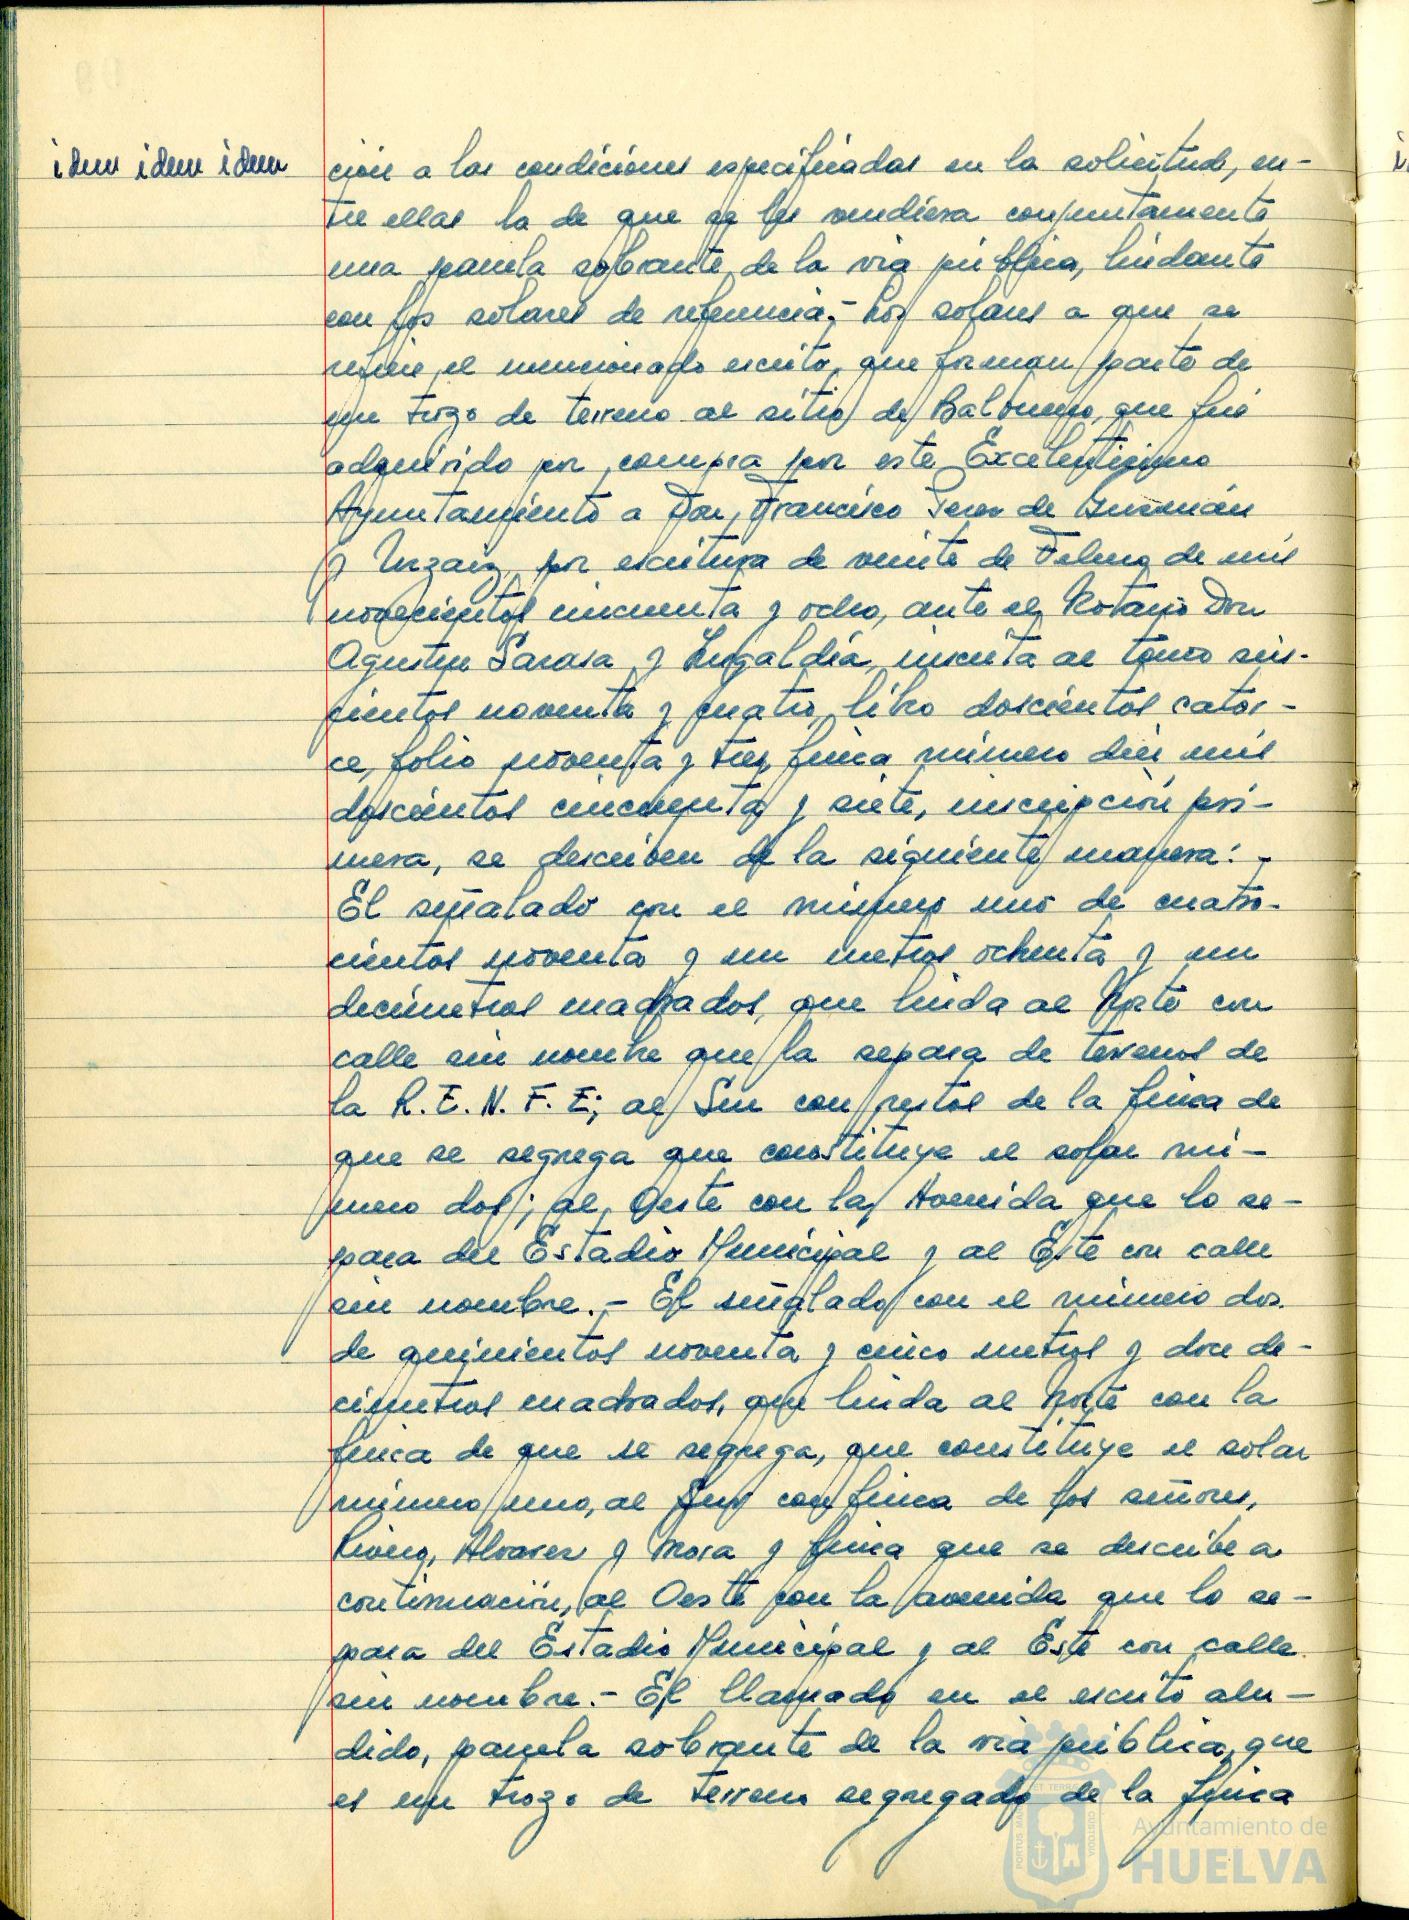 idem idem idem
ción a las condiciones especificadas en la solicitud, en-
tre ellas la de que se les vendiera conjuntamente
una parcela sobrante de la vía pública, lindante
con los solares de referencia.- Los solares a que se
refiere el mencionado escrito, que forman parte de
un trozo de terreno al sitio de Balbueno, que fué
adquirido por compra por este Excelentísimo
Ayuntamiento a Don Francisco Perez de Guzmán
y Urzaiz, por escritura de veinte de Febrero de mil
novecientos cincuenta y ocho, ante el Notario Don
Agustin Sarasa y Zugaldía, inscrita al tomo seis-
cientos noventa y cuatro, libro doscientos cator-
ce, folio noventa y tres, finca número diez mil
doscientos cincuenta y siete, inscripción pri-
mera, se describen de la siguiente manera: -
El señalado con el número uno de cuatro-
cientos noventa y un metros ochenta y un
decímetros cuadrados, que linda al Norte con
calle sin nombre que la separa de terrenos de
la R.E.N.F.E; al Sur con restos de la finca de
que se segrega que constituye el solar nú-
mero dos; al Oeste con la Avenida que lo se-
para del Estadio Municipal y al Este con calle
sin nombre.- El señalado con el número dos
de quinientos noventa y cinco metros y doce de-
címetros cuadrados, que linda al Norte con la
finca de que se segrega, que constituye el solar
número uno, al Sur con finca de los señores,
Rivero, Alvarez y Mora y finca que se describe a
continuación, al Oeste con la avenida que lo se-
para del Estadio Municipal y al Este con calle
sin nombre.- El llamado en el escrito alu-
dido, parcela sobrante de la vía pública, que
es un trozo de terreno segregado de la finca
Ayuntamiento de
HUELVA